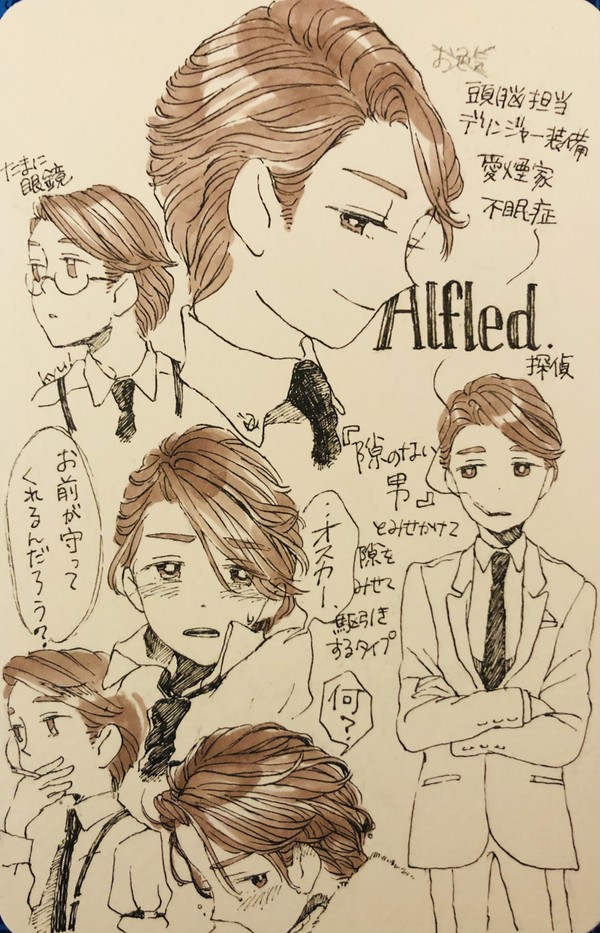 頭脳担当
デリンジャー装備
愛煙家
不眠症
たまに
眼鏡
Alfled.
探偵
hyul
『隙のない
男』
とみせかけて
隙を
みせて
駆引き
するタイプ
お前が守って
くれるんだろう?
…オスカー、
何?